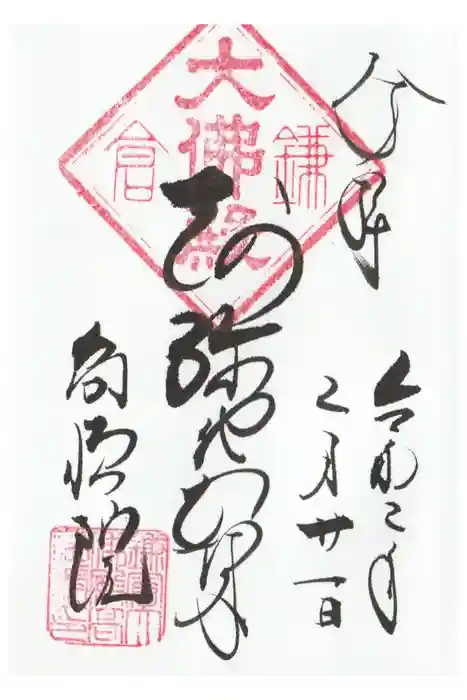 奉拝
令和二年
二月廿一日
鎌倉
大佛殿
阿弥陀如来
高徳院